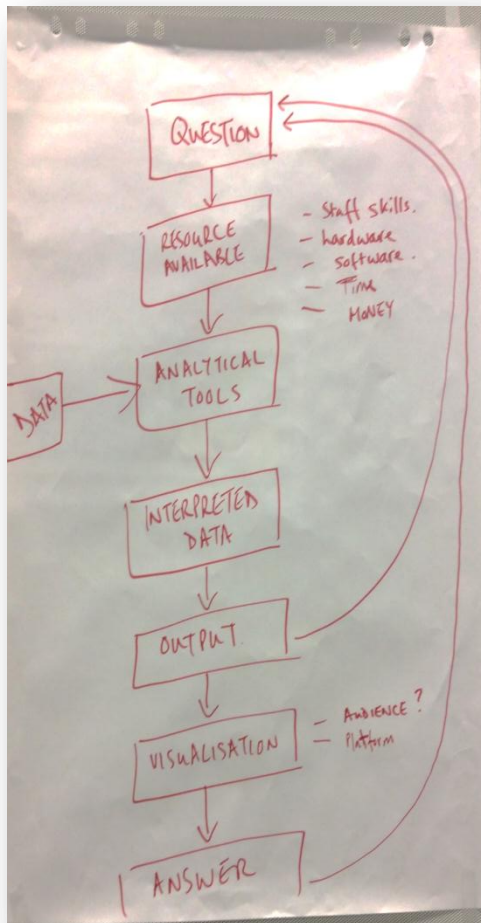 QUESTION
RESOURCE
AVAILABLE
- Staff skills.
- hardware
- software.
- Time
- MONEY
ANALYTICAL
TOOLS
DATA
INTERPRETED
DATA
OUTPUT.
VISUALISATION
- AUDIENCE?
- Platform
ANSWER